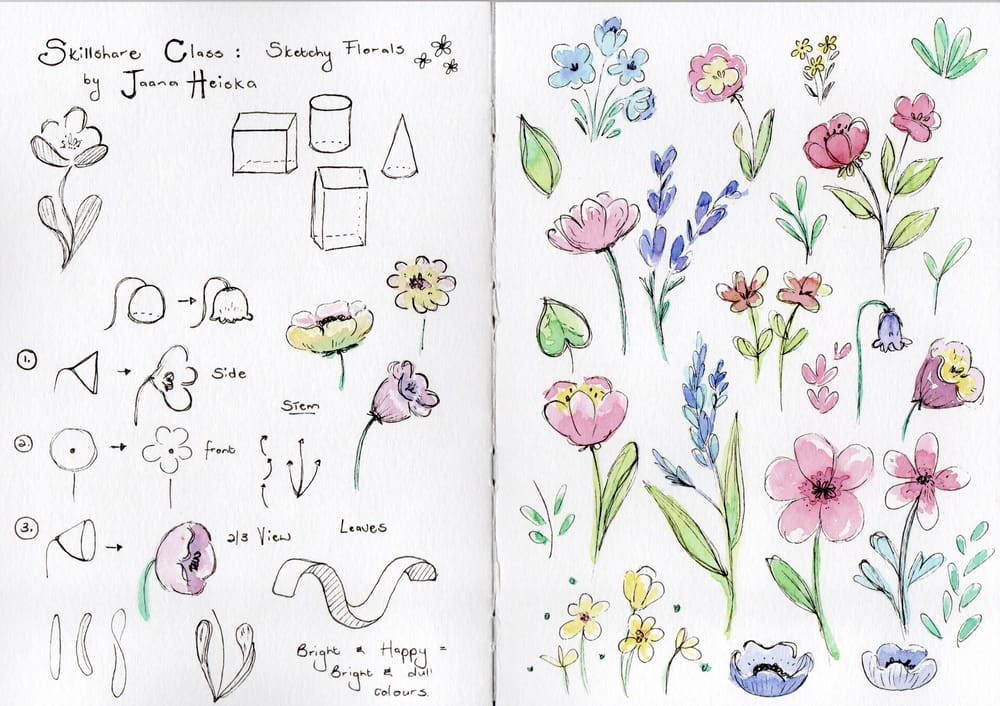 Skillshare Class : Sketchy Florals
by Jaana Heiska
1. Side
Stem
2. front
3. 2/3 View
Leaves
Bright & Happy =
Bright & dull
colours.